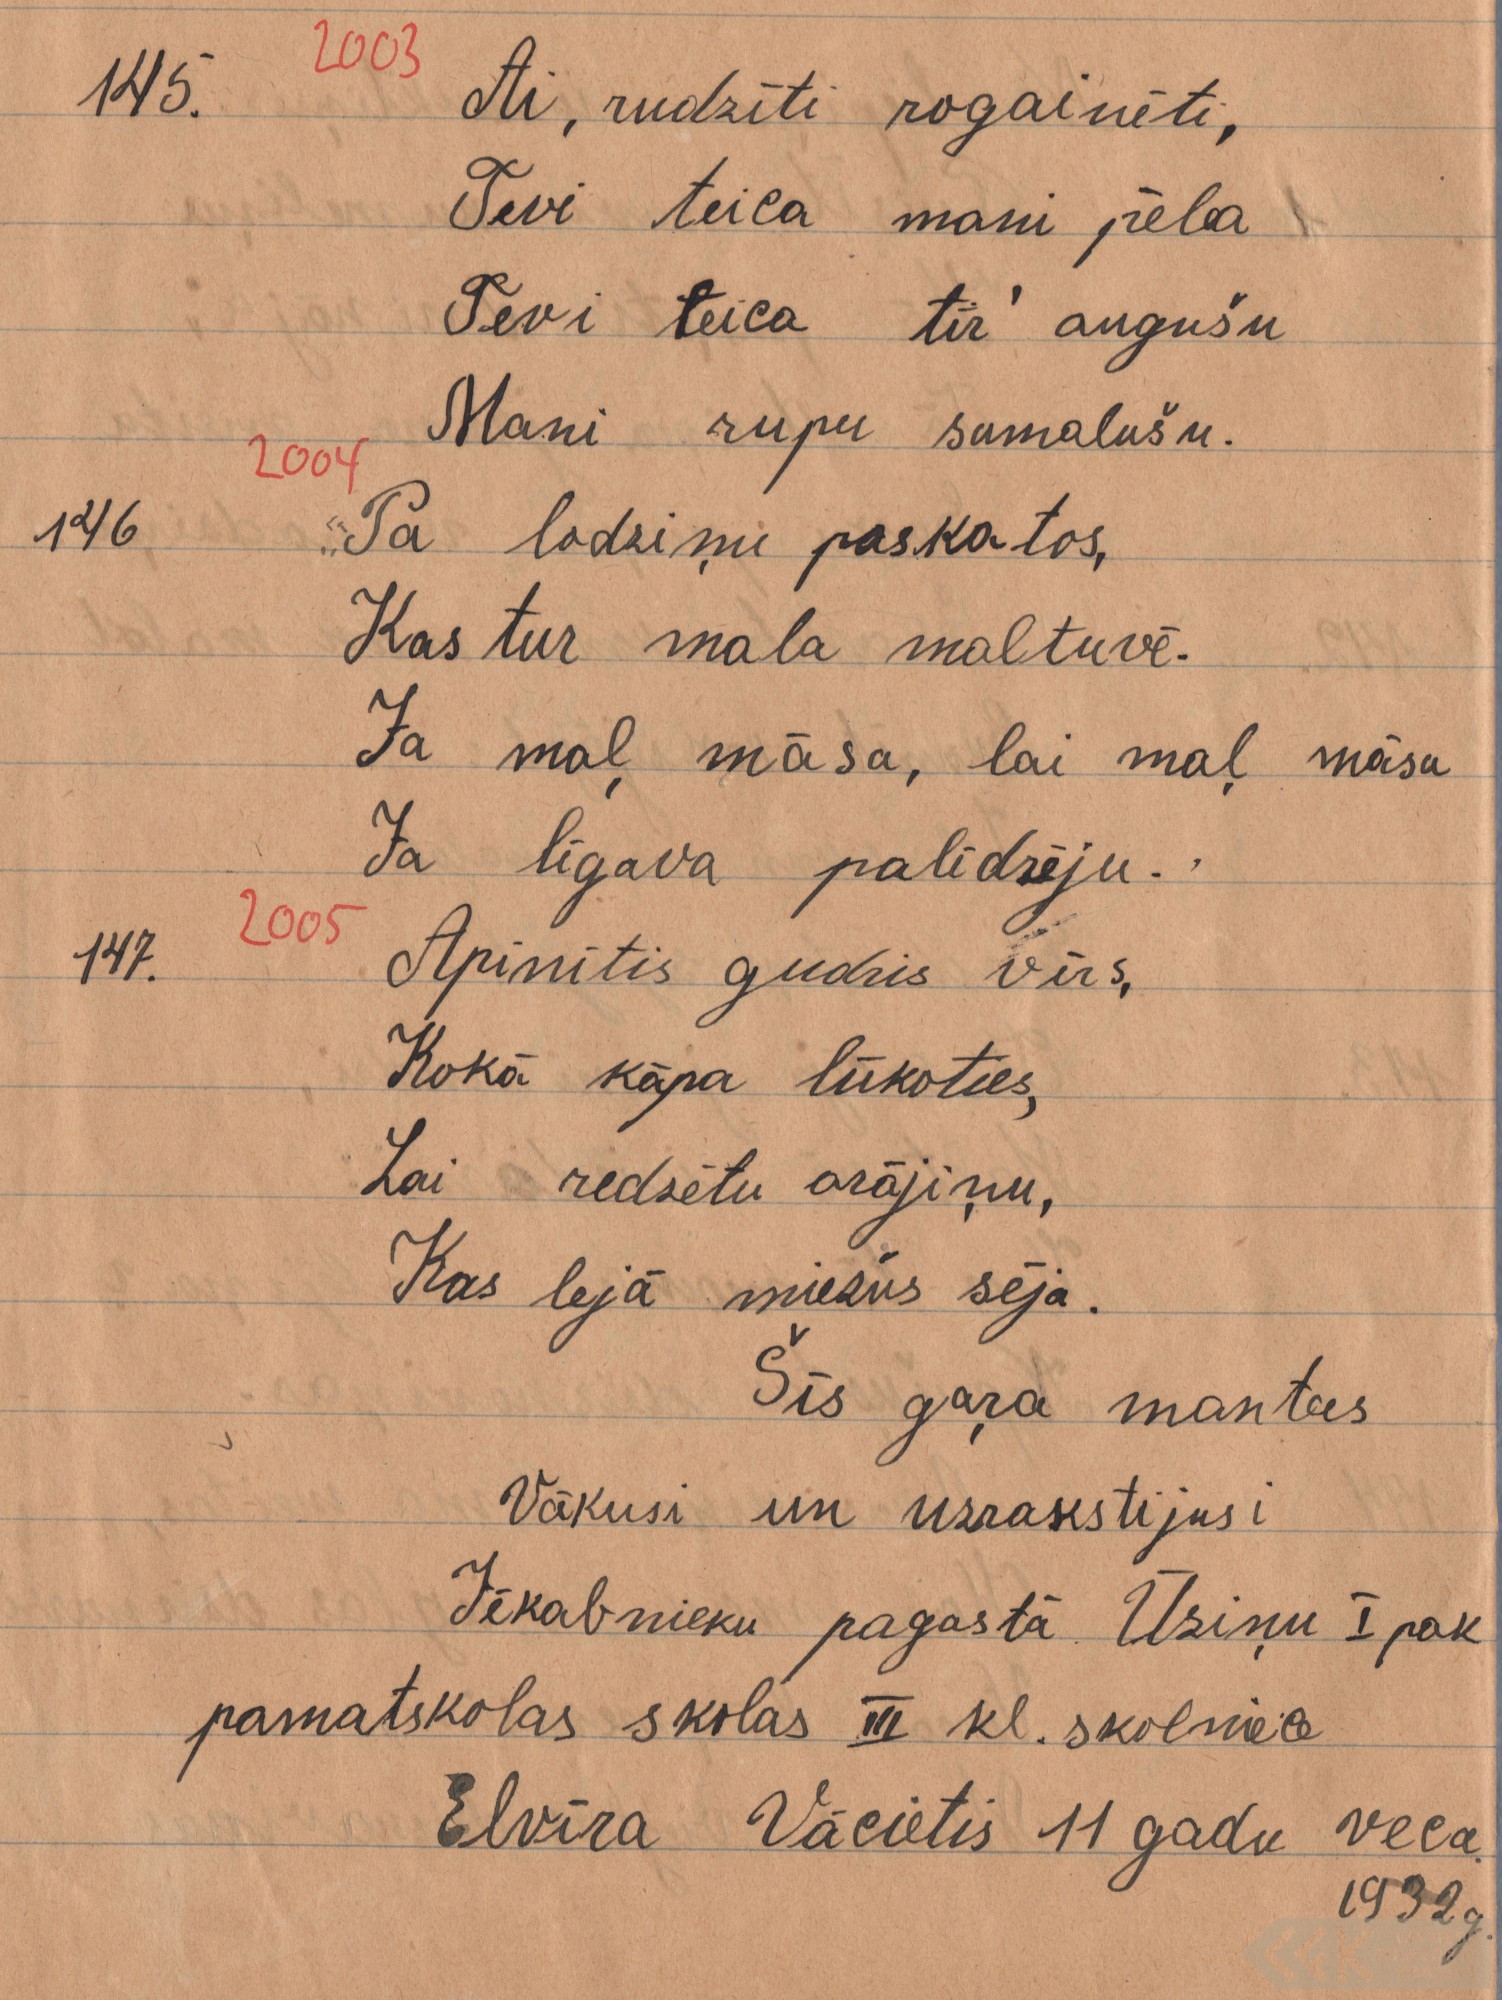 145. 2003 Ai, rudzīti rogainēti,
Tevi teica mani pēla
Tevi teica tīr' augušu
Mani rupu samalušu.
2004
146 Pa lodziņu paskatos,
Kas tur mala maltuvē.
Ja maļ māsa, lai maļ māsa
Ja līgava palīdzēju.
2005
147. Apinītis gudris vīrs,
Kokā kāpa lūkoties,
Lai redzētu arājiņu,
Kas lejā miežus sēja.
Šīs gaŗa mantas
Vākusi un uzrakstijusi
Jēkabnieku pagastā Ūziņu I pak
pamatskolas skolas III kl. skolniece
Elvīra Vācietis 11 gadu veca.
1932g.